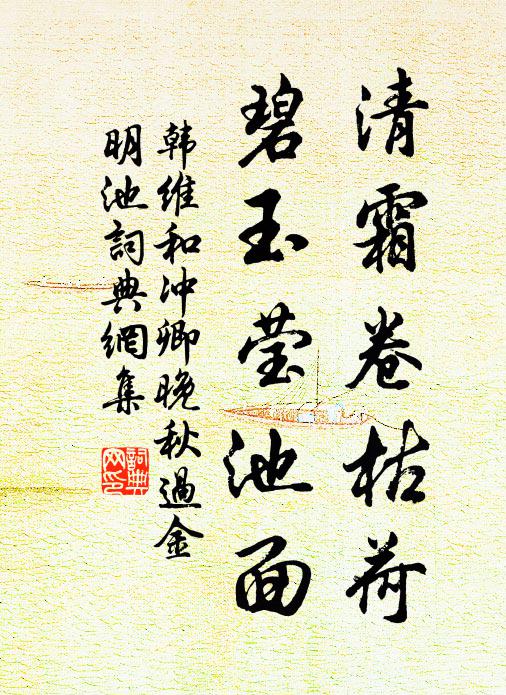 清霜卷枯荷
碧玉莹池面
韩维和冲卿晚秋過金
明池詞典網集
詞典
网印